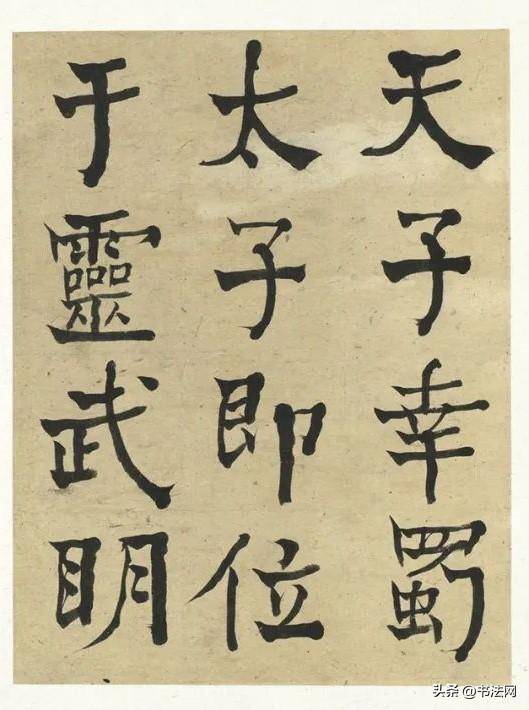 天子幸蜀
太子即位
于靈武明
头条 @书法网